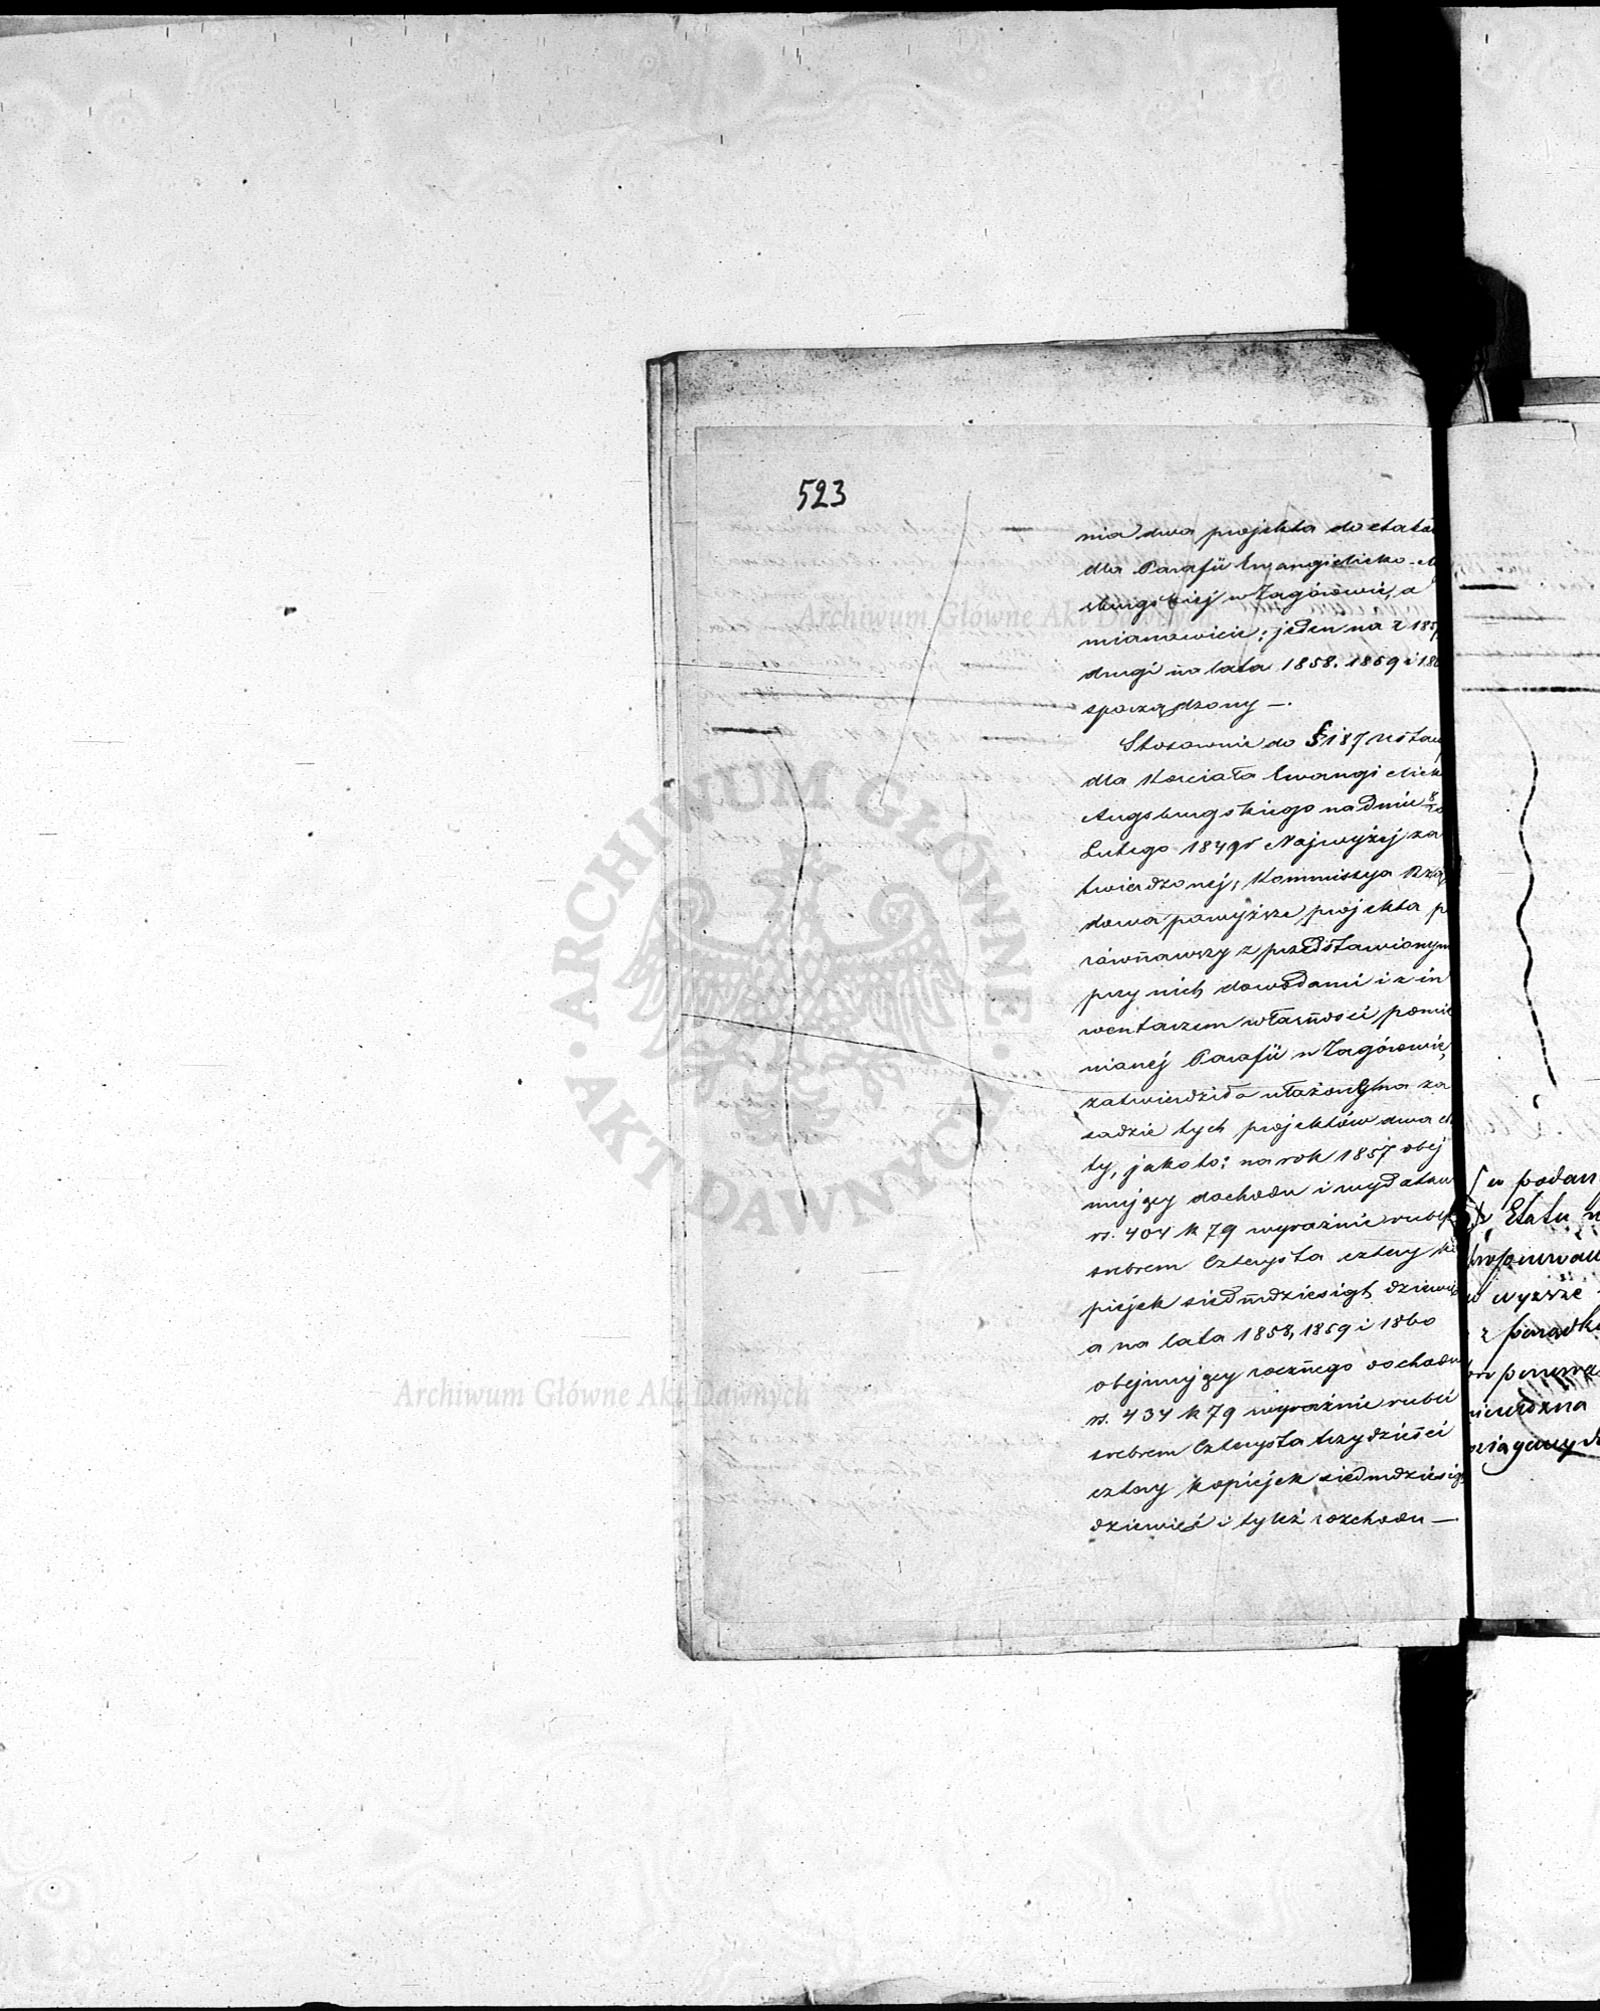 523
nia dwa projekta do etató
dla Parafii Ewangielicko-A
sburgskiej w Zagórowie, a
mianowicie: jeden na r 185
drugi na lata 1858. 1859 i 186
sporządzony —.
Stosownie do § 187 ustaw
dla Kościoła Ewangielick
Augsburgskiego na dniu 8/20
Lutego 1849r Najwyżej za
twierdzonej, Kommissya Rzą
dowa powyższe projekta p
równawszy z przedstawionym
przy nich dowodami i z in
wentarzem własności pomie
nianej Parafii w Zagórowie,
zatwierdziła ułożony na za
sadzie tych projektów dwa et
ty, jako to: na rok 1857 obej
mujący dochodu i wydatku
rs. 404 k 79 wyraźnie rubl
srebrem Czterysta cztery ko
piejek siedmdziesiąt dziewię
a na lata 1858, 1859 i 1860
obejmujący rocznego dochodu
rs. 434 k 79 wyraźnie rubli
srebrem Czterysta trzydzieści
cztery kopiejek siedmdziesią
dziewięć i tyleż rozchodu —
w podan
Etatu
wyższe
z porządk
Archiwum Główne Akt Dawnych
ARCHIWUM GŁÓWNE · AKT DAWNYCH ·
Archiwum Główne Akt Dawnych